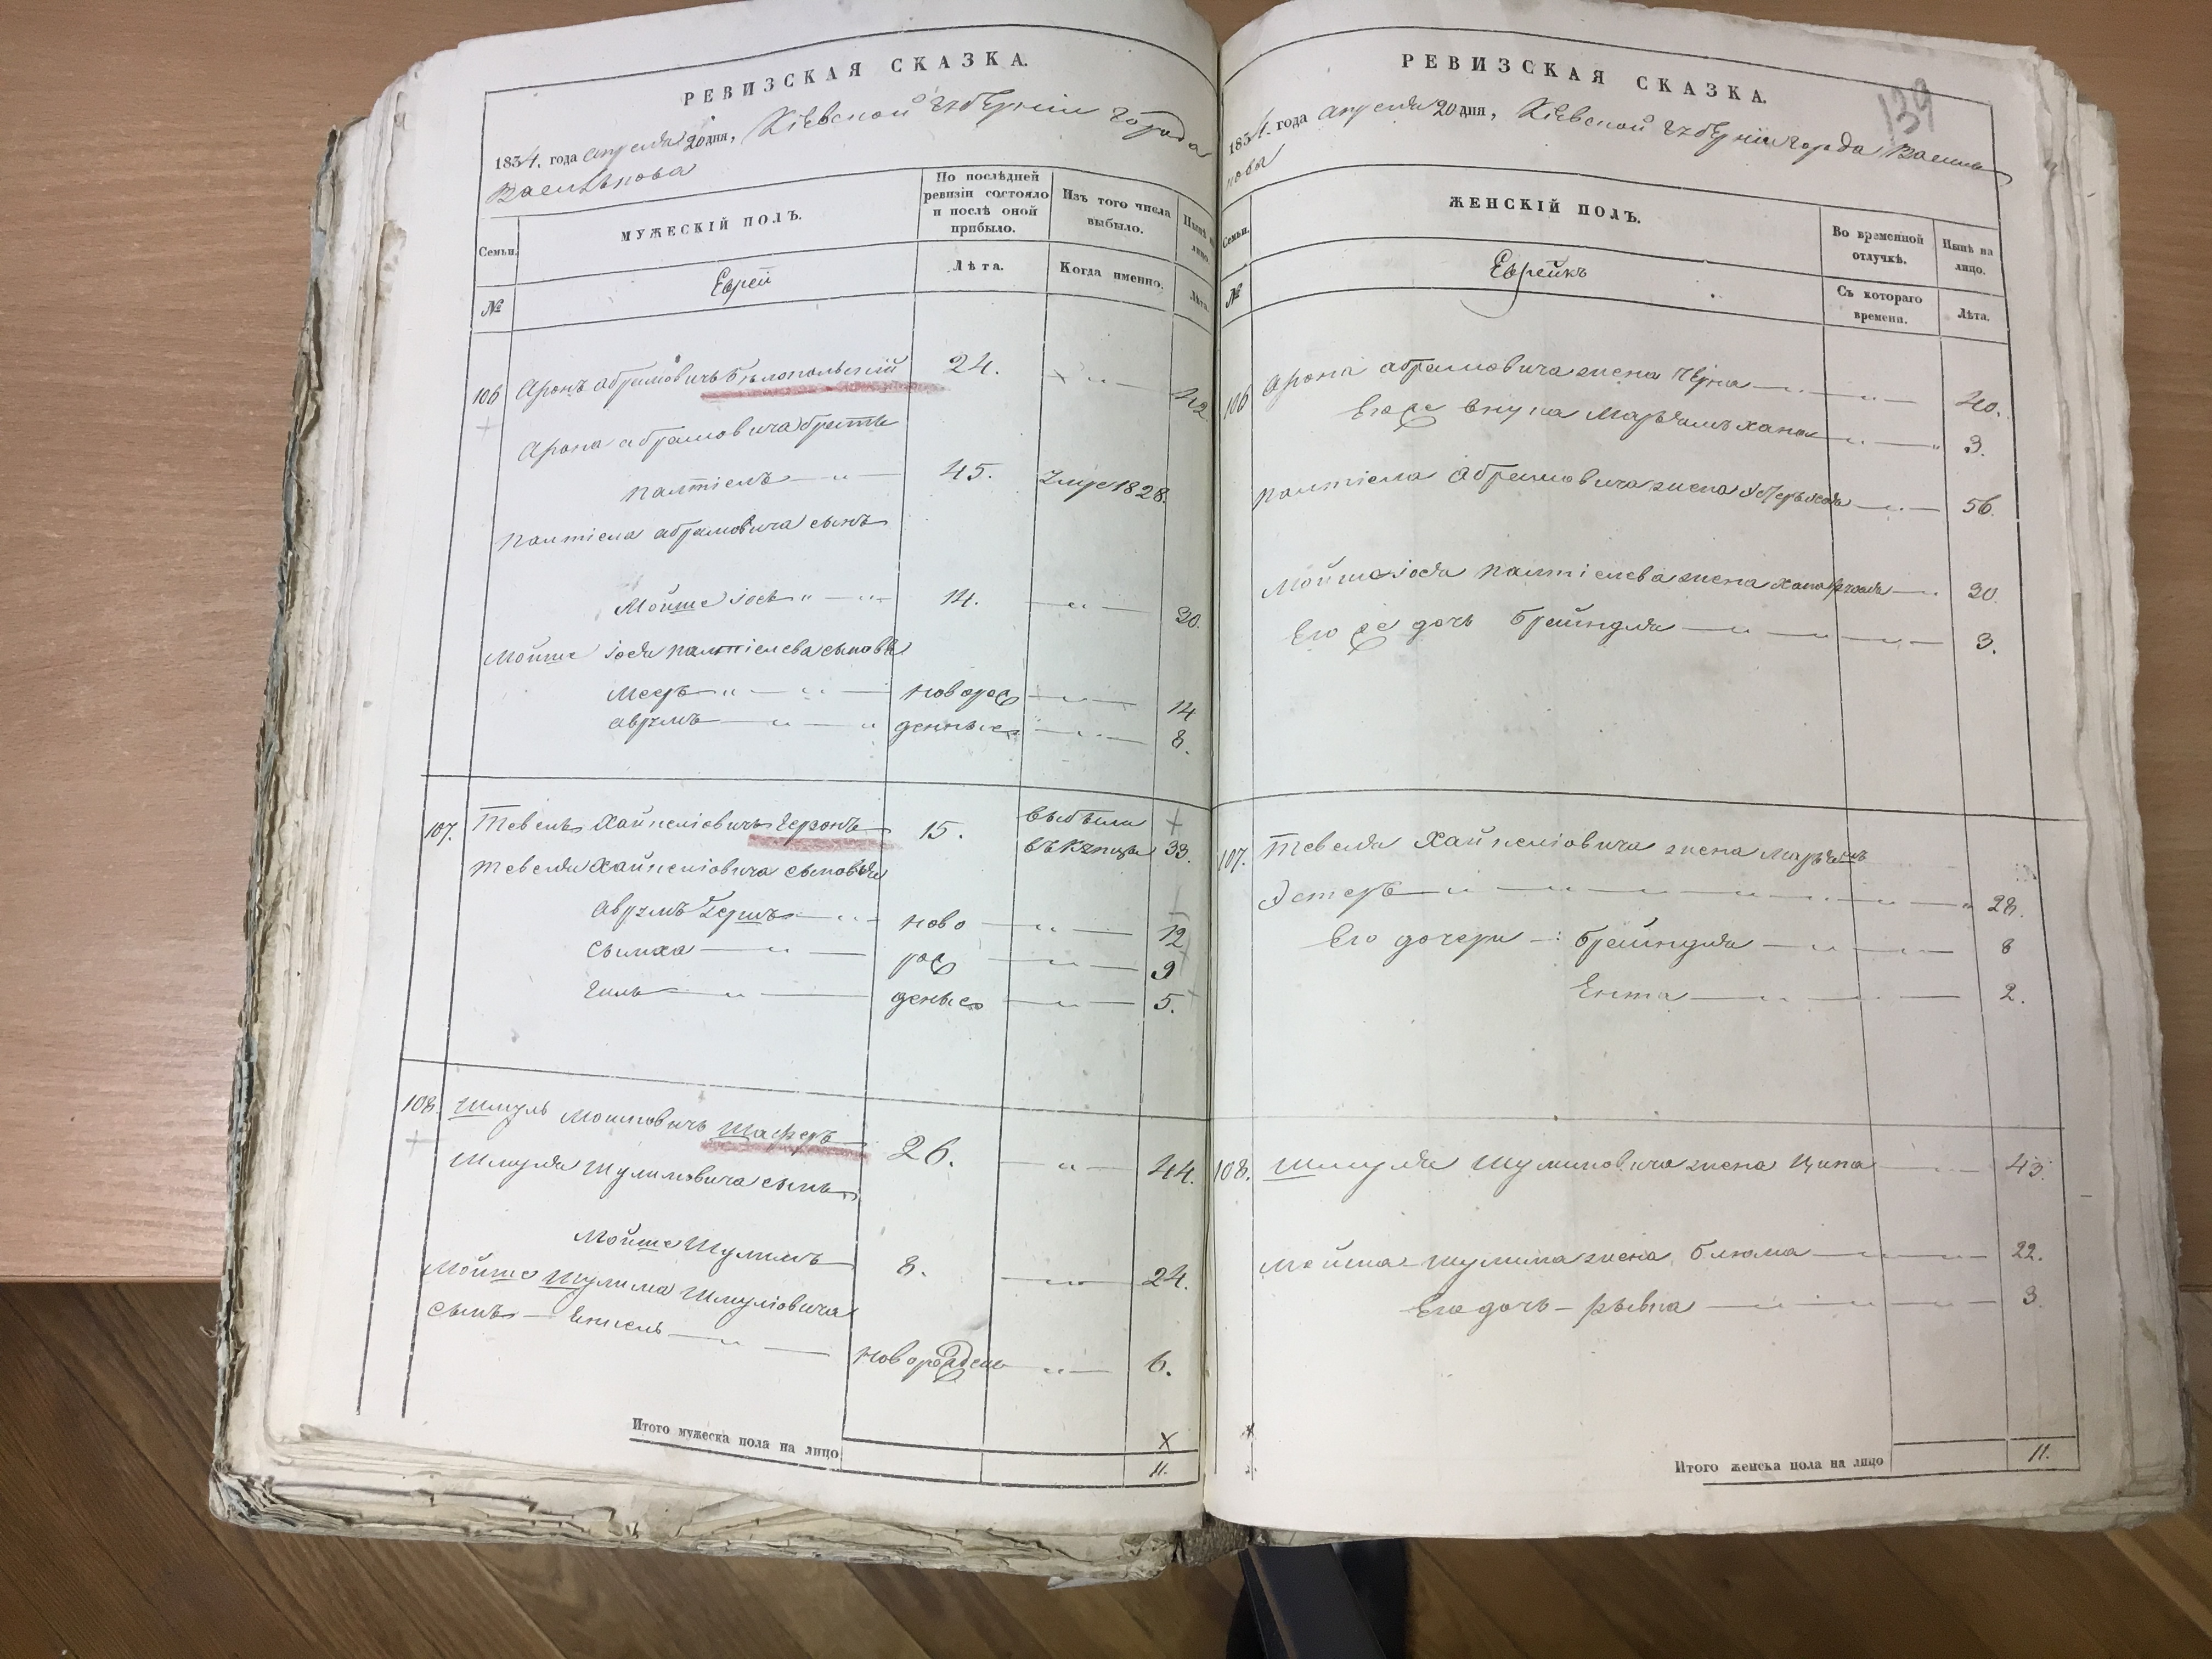 РЕВИЗСКАЯ СКАЗКА.
1834. года апреля 20 дня, Кіевской губерніи города
Василькова
Семьи.
МУЖЕСКІЙ ПОЛЪ.
По послѣдней ревизіи состояло и послѣ оной прибыло.
Изъ того числа выбыло.
Нынѣ на лицо.
№
Еврей
Лѣта.
Когда именно.
Лѣта.
106 Аронъ абрамовичь Бѣлопольскій 24. 42
Арона абрамовича братъ
Палтіель 45. Умре 1828.
Палтіела абрамовича сынъ
Мойше іось 14. 30.
Мойше іося палтіелева сыновья
Меер новорож 14
аврумъ денные 8.
107. Тевель Хайкеліовичь Герзонъ 15. выбыли
въ купцы 33.
Тевеля Хайкеліовича сыновья
аврумъ Гершъ ново 12
Сымха рож 9
Гиль деные 5.
108. Шмуль Мошковичь Шаферъ 26. 44.
Шмуля Шулимовича сынъ
Мойше Шулимъ 8. 24.
Мойше Шулима Шмуліовича
сынъ новорожден 6.
Итого мужеска пола на лицо 11.
РЕВИЗСКАЯ СКАЗКА.
139
1834. года апреля 20 дня, Кіевской губерніи города Василь
кова
Семьи.
ЖЕНСКІЙ ПОЛЪ.
Во временной отлучкѣ.
Нынѣ на лицо.
№
Еврейкъ
Съ котораго времени.
Лѣта.
106 Арона абрамовича жена Черна 40.
Егоже внука Марьямъ хана 3.
Палтіела абрамовича жена 56.
Мойше іося палтіелева жена хана 30.
Его же дочь Брейндля 3.
107. Тевеля Хайкеліовича жена Марьямъ
Эстеръ 28.
Его дочери: Брейндля 8
Ента 2.
108. Шмуля Шулимовича жена Ципа 43.
Мойша Шулима жена Блюма 22.
Его дочь - рывка 3.
Итого женска пола на лицо 11.